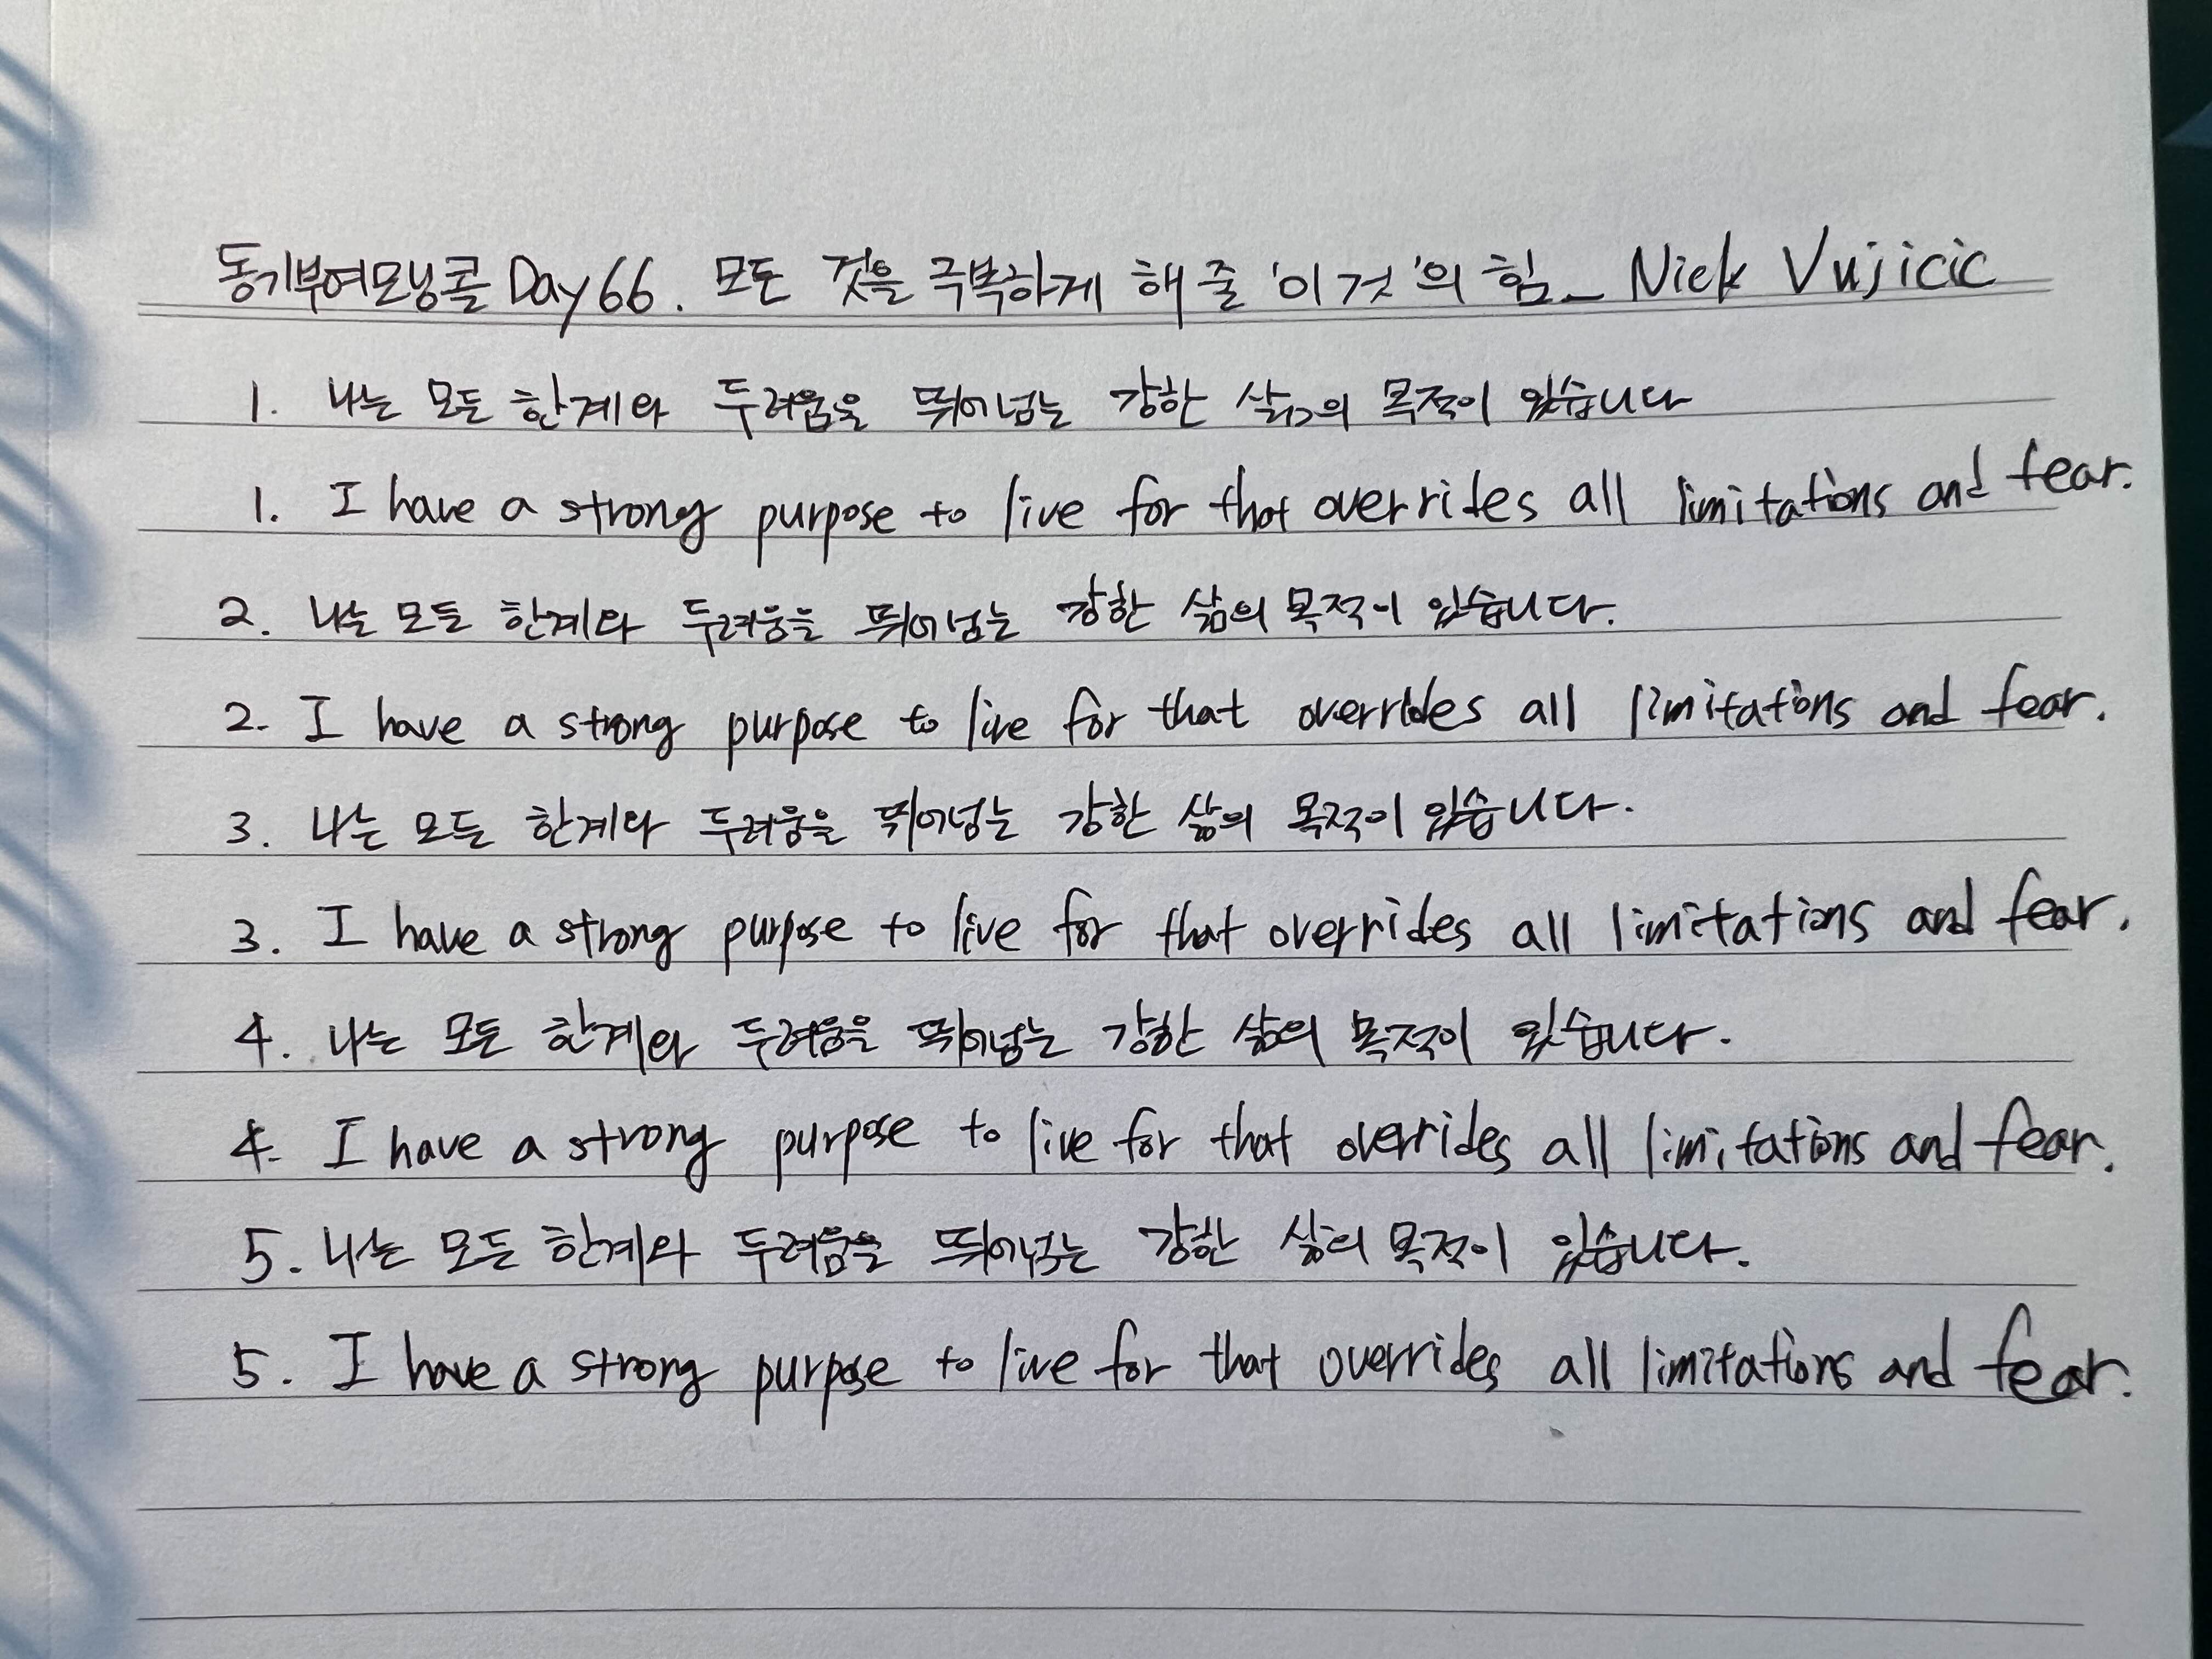 동기부여모닝콜 Day 66. 모든 것을 극복하게 해 줄 '이것'의 힘_ Nick Vujicic
1. 나는 모든 한계와 두려움을 뛰어넘는 강한 삶의 목적이 있습니다
1. I have a strong purpose to live for that overrides all limitations and fear.
2. 나는 모든 한계와 두려움을 뛰어넘는 강한 삶의 목적이 있습니다.
2. I have a strong purpose to live for that overrides all limitations and fear.
3. 나는 모든 한계와 두려움을 뛰어넘는 강한 삶의 목적이 있습니다.
3. I have a strong purpose to live for that overrides all limitations and fear.
4. 나는 모든 한계와 두려움을 뛰어넘는 강한 삶의 목적이 있습니다.
4. I have a strong purpose to live for that overrides all limitations and fear.
5. 나는 모든 한계와 두려움을 뛰어넘는 강한 삶의 목적이 있습니다.
5. I have a strong purpose to live for that overrides all limitations and fear.